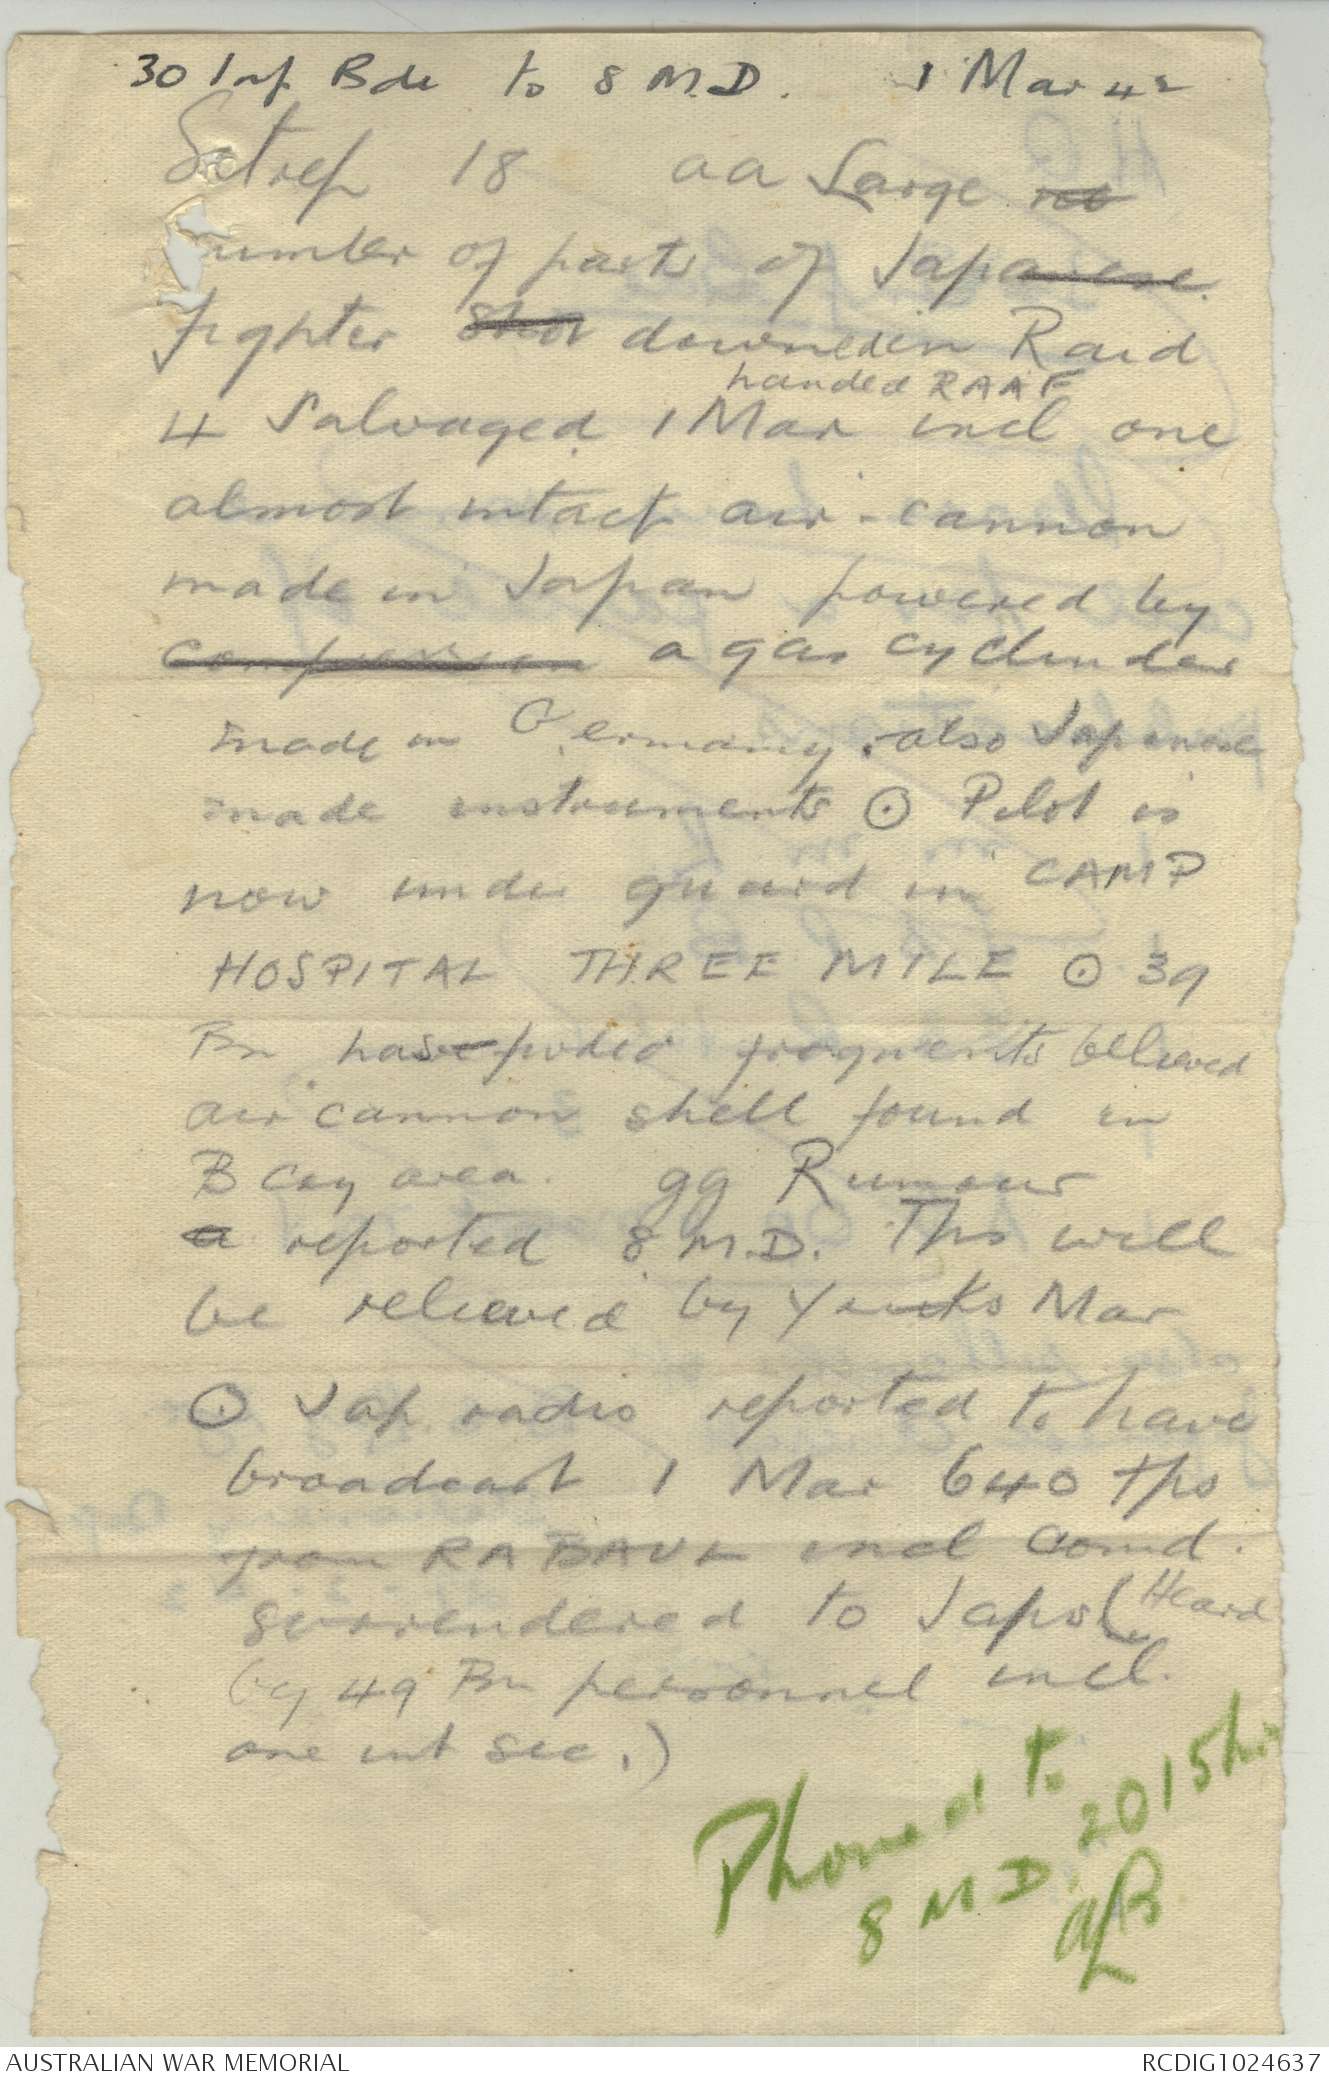 30 Inf Bde to 8 M.D. 1 Mar 42
Sitrep 18 aa Large no
number of parts of Japanese
fighter shot downed in Raid
handed RAAF
4 Salvaged 1 Mar incl one
almost intact air-cannon
made in Japan powered by
compression a gas cyclinder
made in Germany. also Japanese
made instruments ⊙ Pilot is
now under guard in CAMP
HOSPITAL THREE MILE ⊙ 39
Bn have fragments believed
air cannon shell found in
B Coy area. gg Rumour
a reported 8 M.D. This will
be relieved by Mar
⊙ Jap radio reported to have
broadcast 1 Mar 640 tps
from RABAUL incl Comd.
surrendered to Japs (Heard
by 49 Bn personnel incl.
one int sec.)
Phoned to
8 MD. 2015 hrs